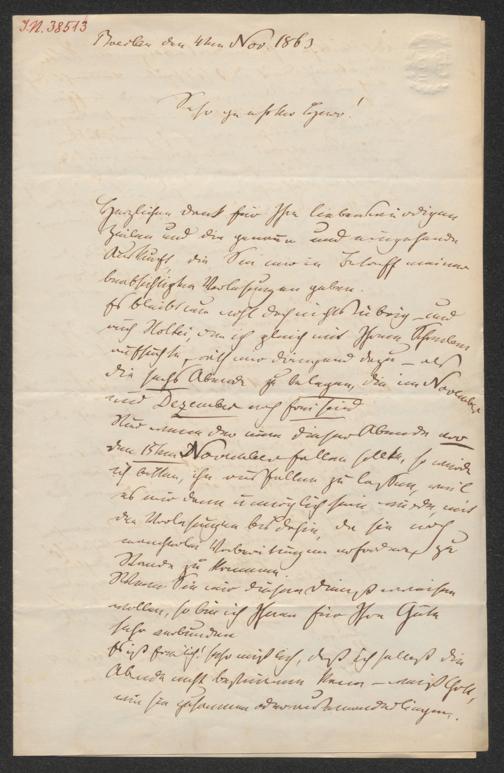 I.N. 38513
Breslau den 4ten Nov. 1863
Sehr geehrter Herr!
Herzlichen Dank für Ihre liebenswürdigen
Zeilen und die genaue und eingehende
Auskunft, die Sie mir in Betreff meiner
beabsichtigten Vorlesungen geben.
Es bleibt nun wohl doch nichts übrig – und
auch Holtei, den ich gleich mit Ihrem Schreiben
aufsuchte, räth mir dringend dazu – als
die sechs Abende zu belegen, die im November
und Dezember noch frei sind.
Nur wenn der eine dieser Abende vor
den 15ten November fallen sollte, so würde
ich bitten, ihn ausfallen zu lassen, weil
es mir dann unmöglich sein würde, mit
den Vorlesungen bis dahin, da sie noch
mancherlei Vorbereitungen erfordern, zu
Stande zu kommen.
Wenn Sie mir diesen Dienst erweisen
wollen, so bin ich Ihnen für Ihre Güte
sehr verbunden
Es ist freilich sehr mißlich, daß ich selbst die
Abende nicht bestimmen kann – weiß Gott,
wie sie zusammen oder auseinander liegen.